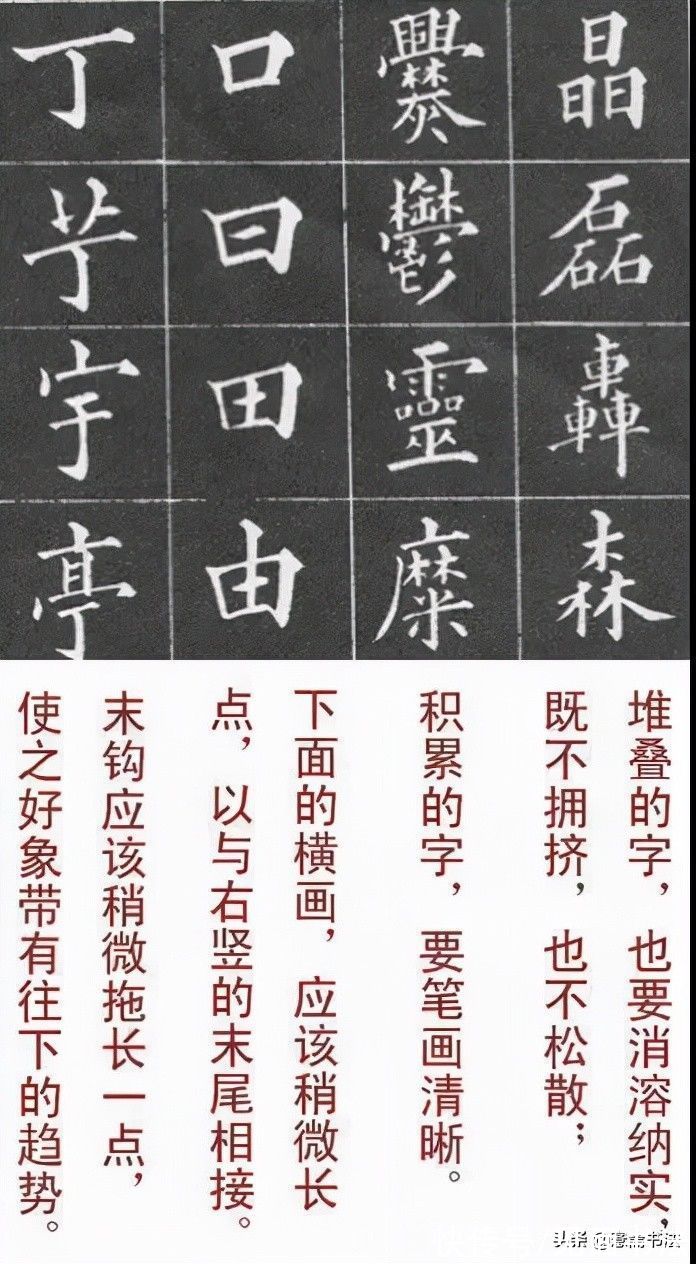 晶磊轟森
爨鬱靈糜
口曰田由
丁芋宇亭
堆叠的字，也要消溶纳实，
既不拥挤，也不松散；
积累的字，要笔画清晰。
下面的横画，应该稍微长
点，以与右竖的末尾相接。
末钩应该稍微拖长一点，
使之好象带有往下的趋势。
头条